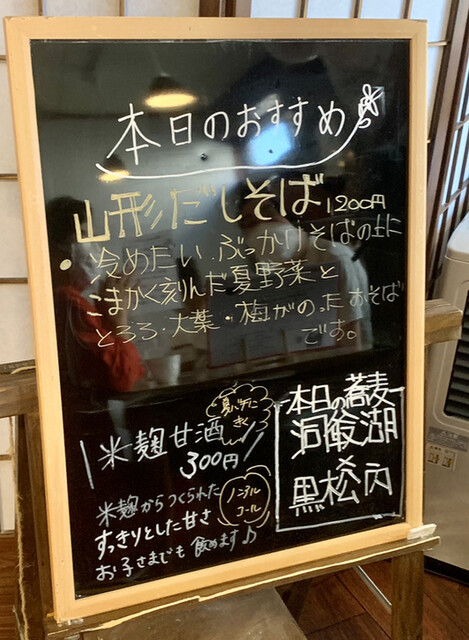 本日のおすすめ
山形だしそば 1200円
冷めたい、ぶっかけそばの上に
こまかく刻んだ夏野菜と
とろろ・大葉・梅がのったおそば
です。
夏バテに
きく
米麹甘酒
300円
米麹からつくられた
すっきりとした甘さ
お子さまでも飲めます♪
ノンアル
コール
本日の蕎麦
洞爺湖
黒松内